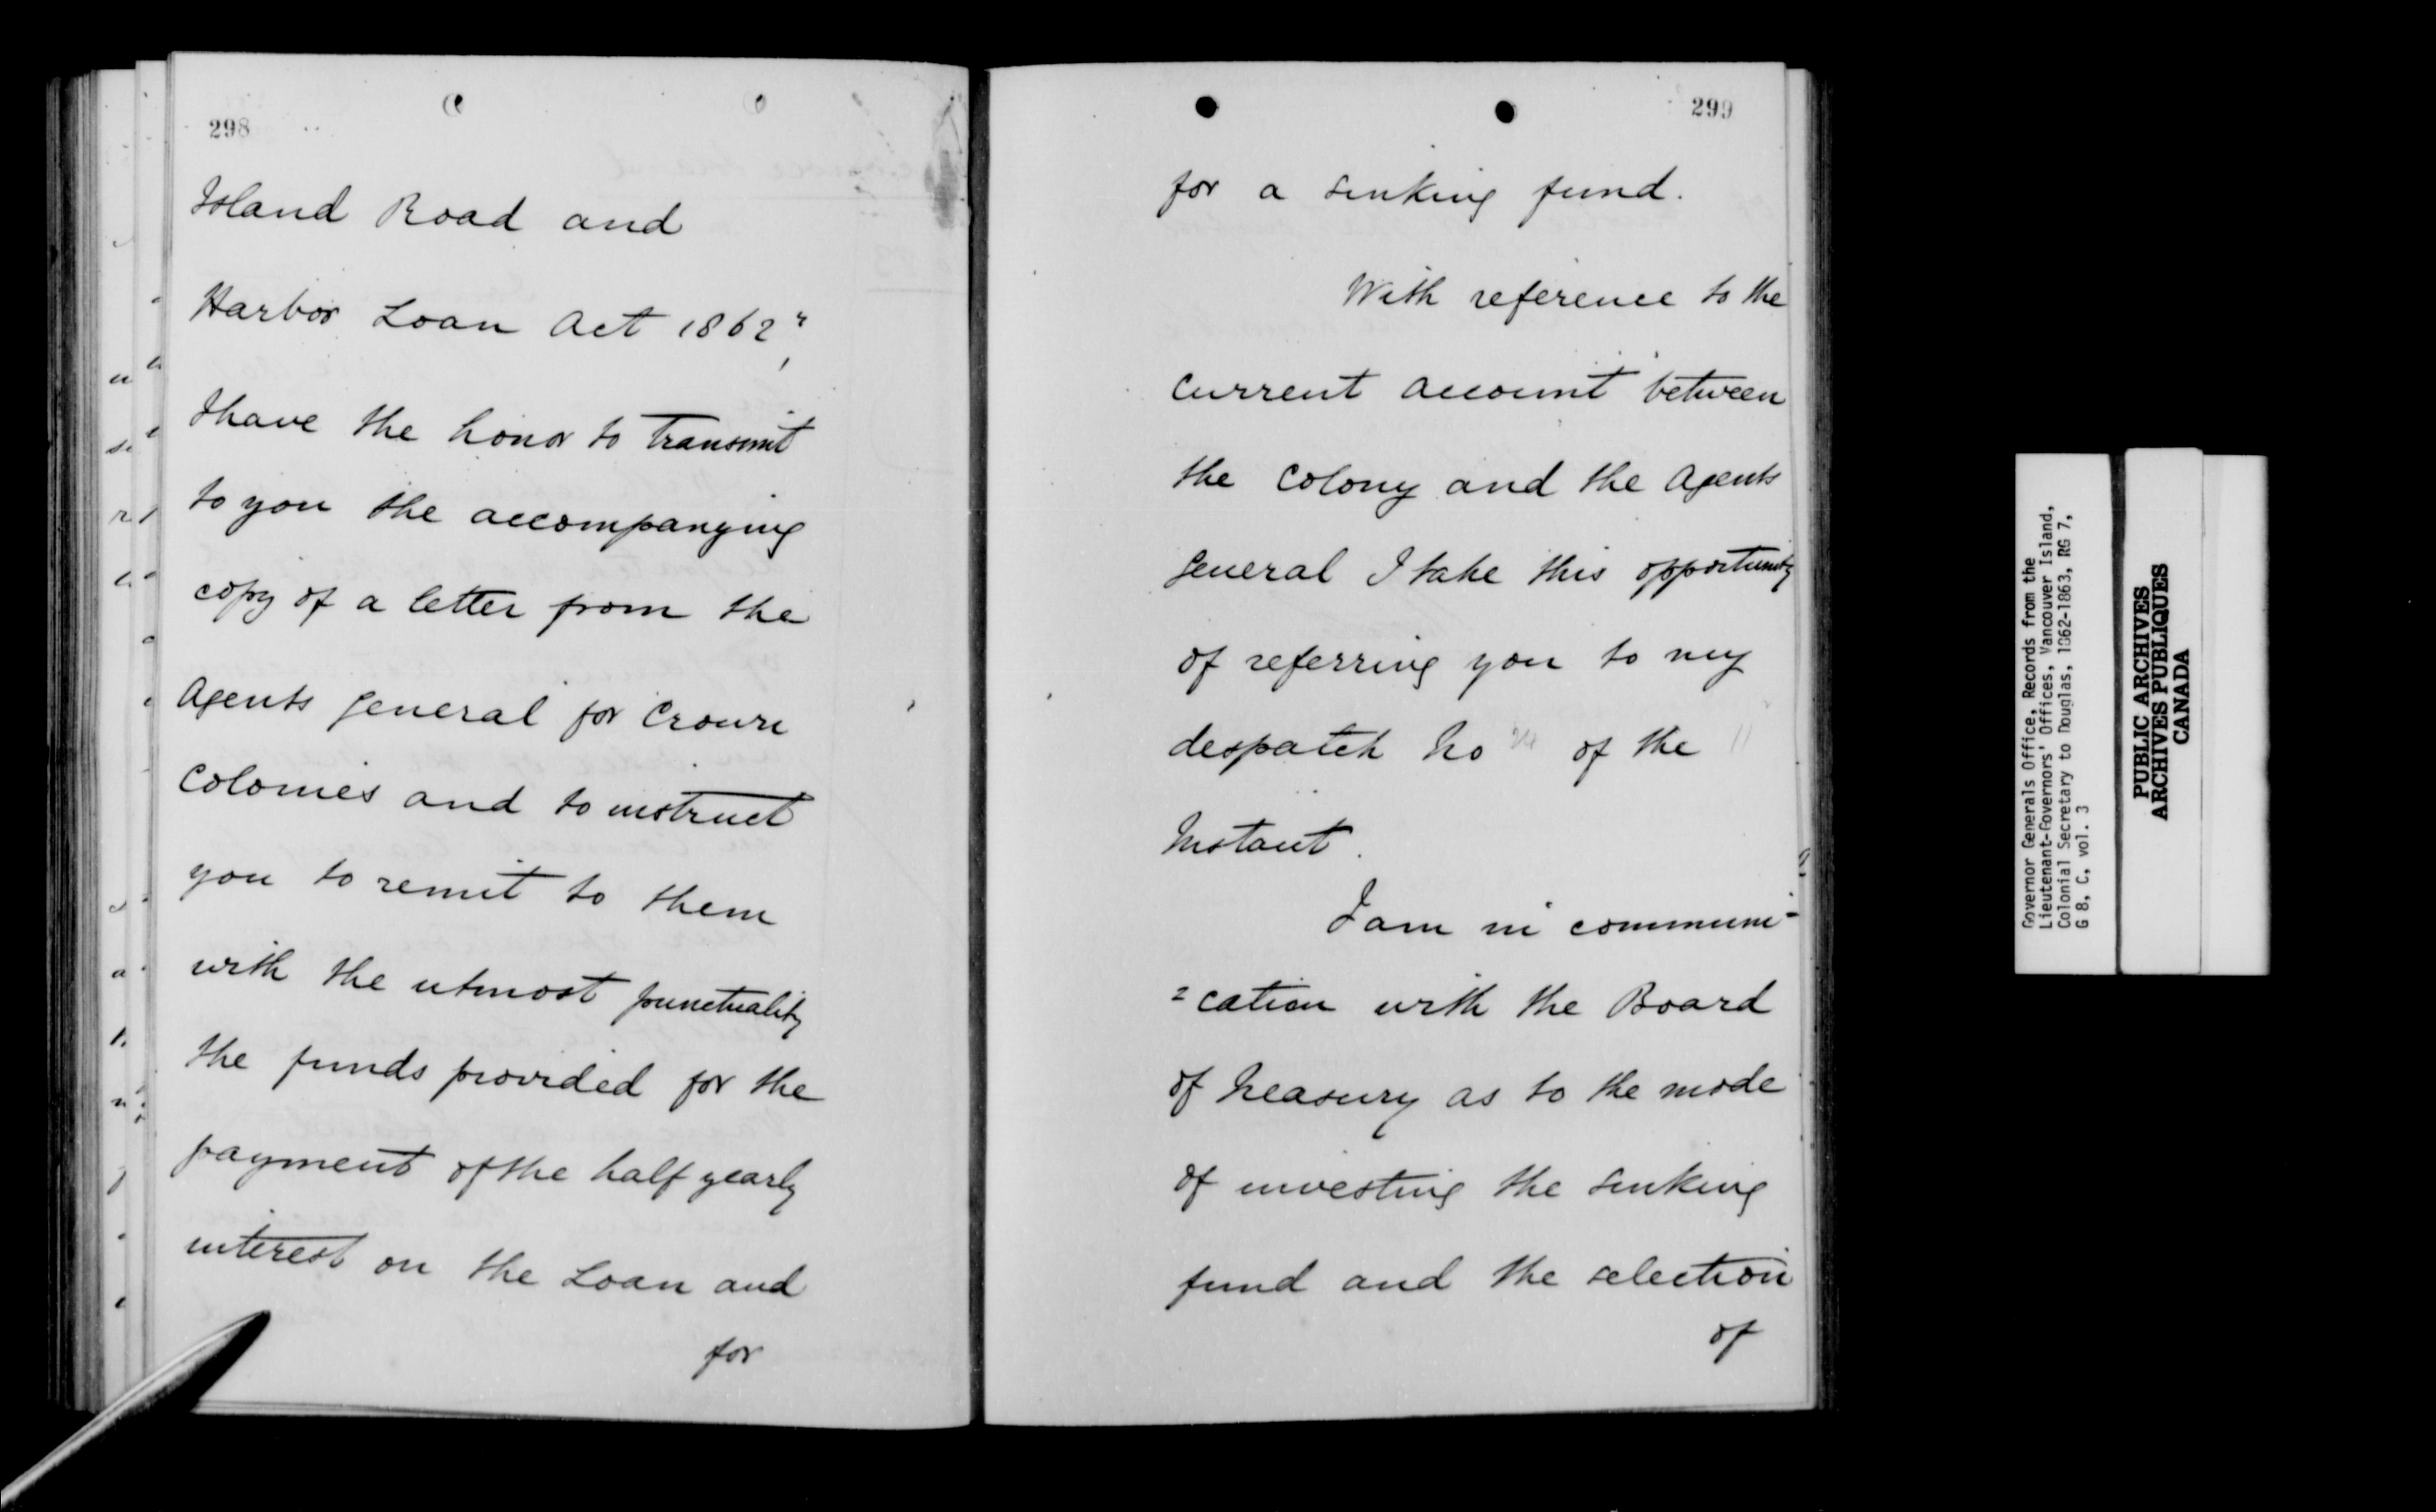 298
Island Road and
Harbor Loan Act 1862",
I have the honor to transmit
to you the accompanying
copy of a letter from the
Agents General for Crown
Colonies and to instruct
you to remit to them
with the utmost punctuality
the funds provided for the
payment of the half yearly
interest on the Loan and
for
299
for a sinking fund.
With reference to the
current account between
the Colony and the Agents
General I take this opportunity
of referring you to my
despatch No of the 11
Instant.
I am in communi-
=cation with the Board
of Treasury as to the mode
of investing the sinking
fund and the selection
of
Governor Generals Office, Records from the
Lieutenant-Governors' Offices, Vancouver Island,
Colonial Secretary to Douglas, 1862-1863, RG 7,
G 8, C, vol. 3
PUBLIC ARCHIVES
ARCHIVES PUBLIQUES
CANADA